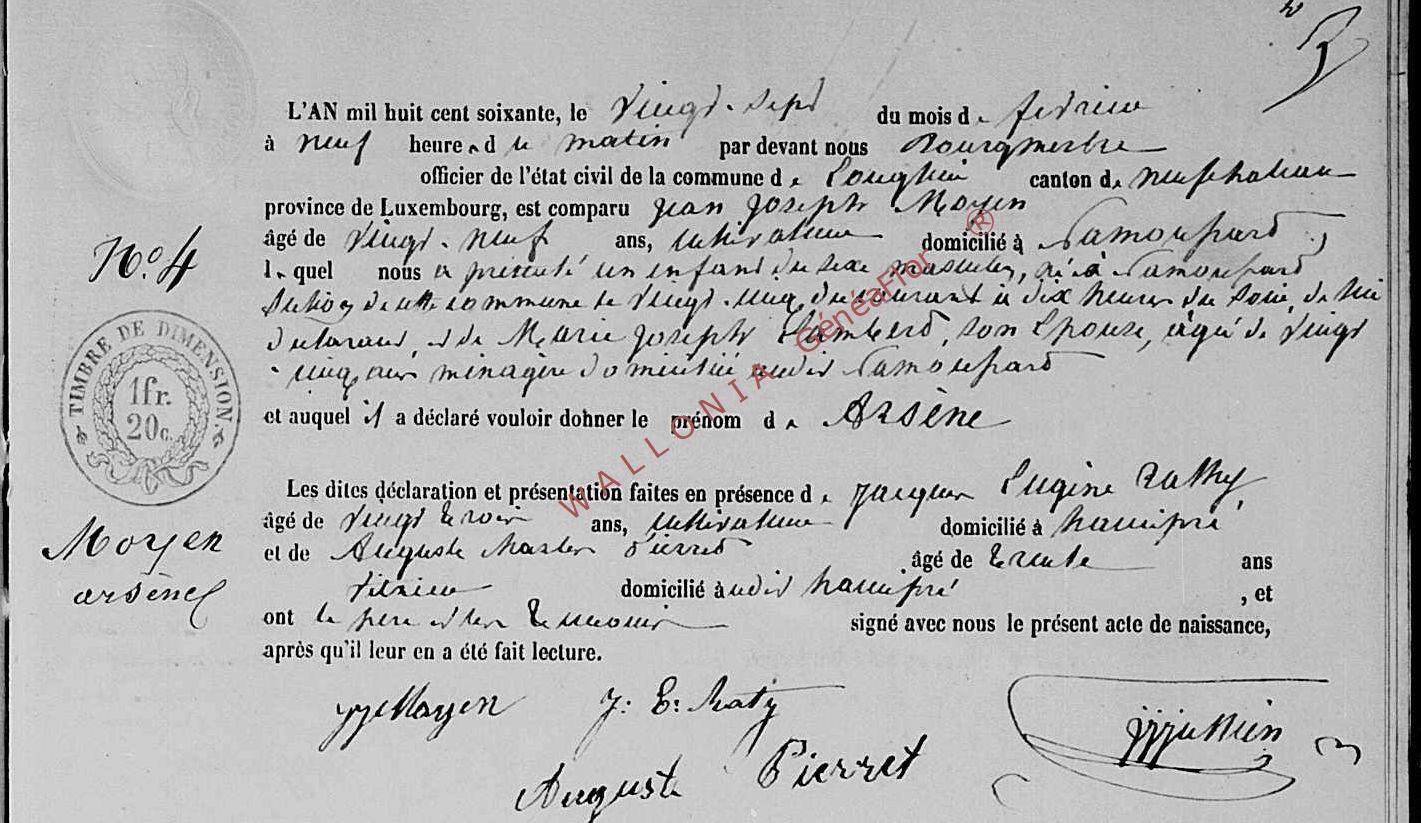 3
L'AN mil huit cent soixante, le Vingt-sept du mois de février
à neuf heures du matin par devant nous Bourgmestre
officier de l'état civil de la commune de Longlier canton de neufchateau
province de Luxembourg, est comparu Jean Joseph Moyen
âgé de Vingt-neuf ans, cultivateur domicilié à Namoussart,
lequel nous a présenté un enfant du sexe masculin, né à Namoussart
section de cette commune le vingt-cinq du courant à dix heures du soir, de lui
déclarant, et de Marie Joseph Lambert, son Epouse, âgée de Vingt
-cinq ans ménagère domiciliée audit Namoussart
et auquel il a déclaré vouloir donner le prénom de Arsène
Les dites déclaration et présentation faites en présence de Jacques Eugène Rathy,
âgé de vingt trois ans, cultivateur domicilié à hamipré
et de Auguste Pierret âgé de trente ans
domicilié audit hamipré, et
ont le père et les témoins signé avec nous le présent acte de naissance,
après qu'il leur en a été fait lecture.
No. 4
TIMBRE DE DIMENSION.
1fr.
20c.
Moyen
arsène
JJMoyen J: E: Raty
Auguste Pierret
WALLONIA GénéaFlor ®